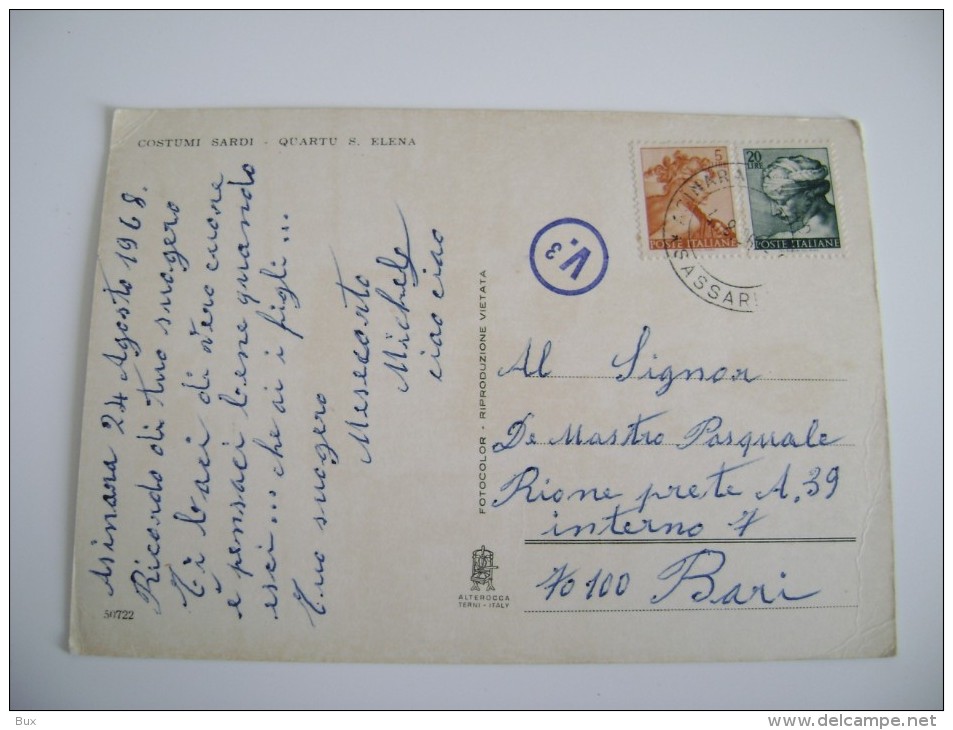 COSTUMI SARDI - QUARTU S. ELENA
Asinara 24 Agosto 1968.
Ricordo di tuo suogero
Ti baci di vero cuore
e pensaci bene quando
esci... che ai i figli...
Tuo suogero
Mesecorto
Michele
ciao ciao
50722
FOTOCOLOR - RIPRODUZIONE VIETATA
ALTEROCCA
TERNI - ITALY
V.3
5
POSTE ITALIANE
20
LIRE
POSTE ITALIANE
ASINARA
SASSARI
Al Signor
De Mastro Pasquale
Rione prete A, 39
interno 7
70100 Bari
Bux
www.delcampe.net